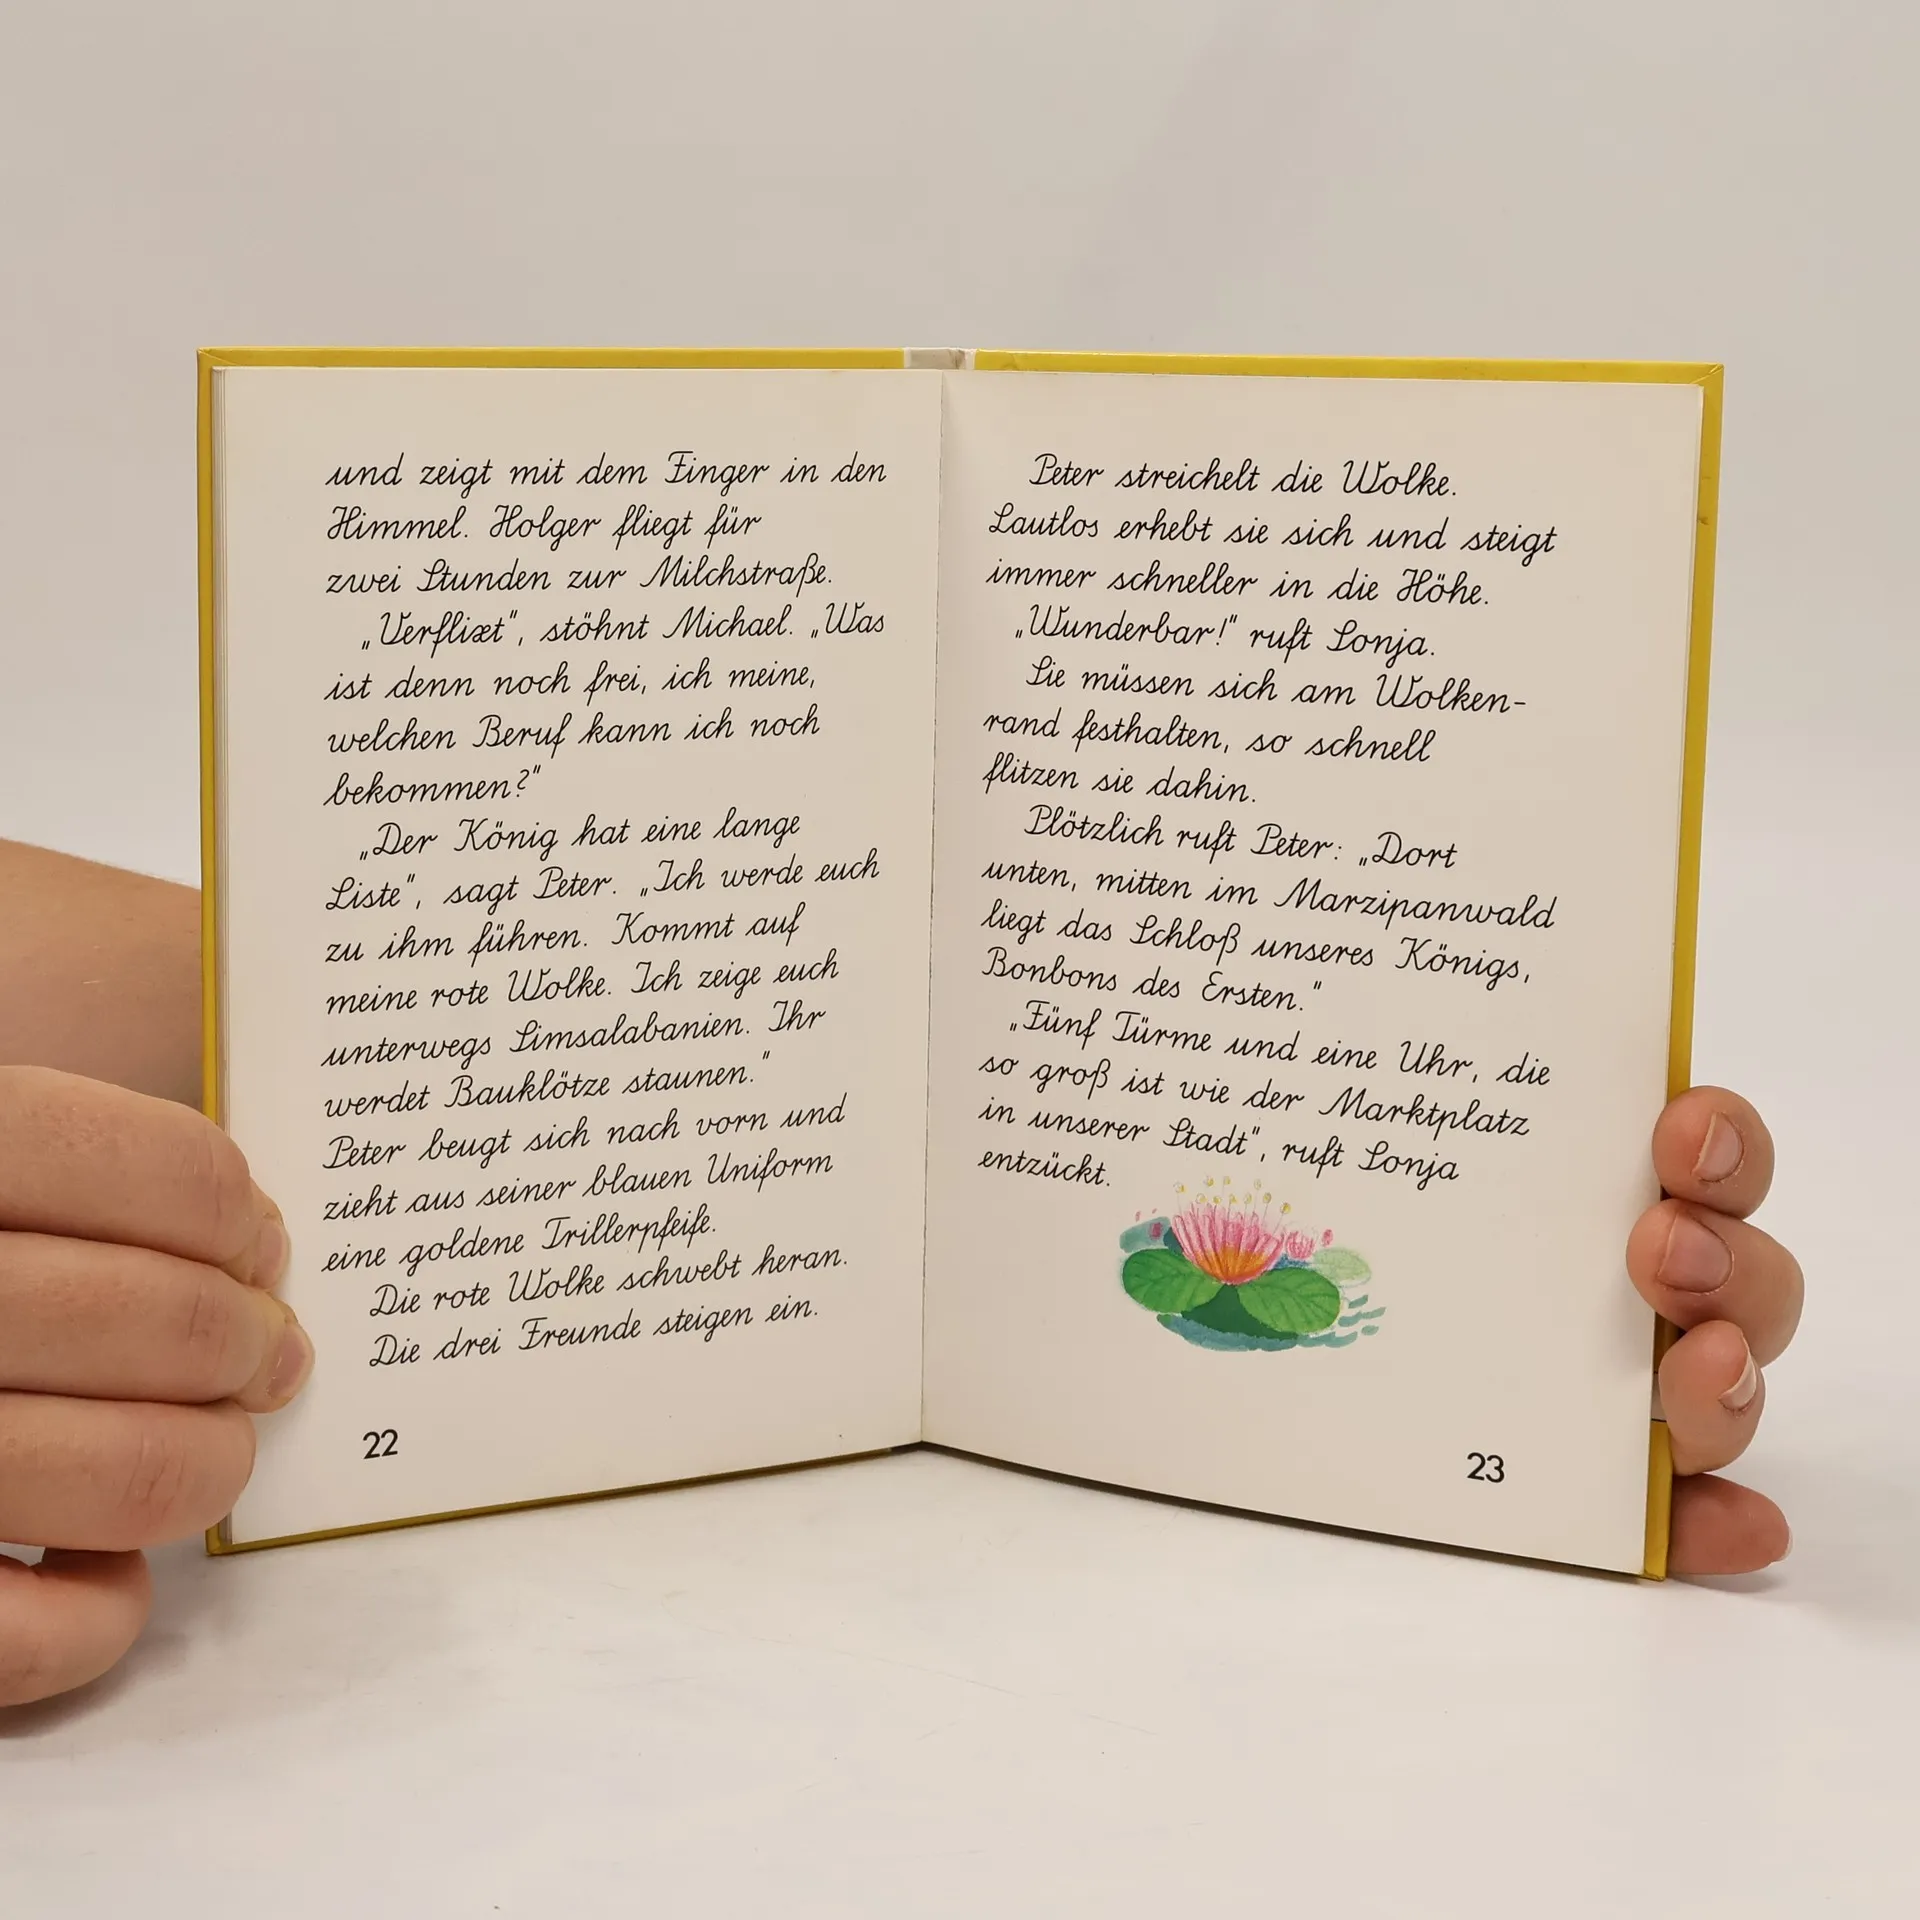 und zeigt mit dem Finger in den
Himmel. Holger fliegt für
zwei Stunden zur Milchstraße.
„Verflixt“, stöhnt Michael. „Was
ist denn noch frei, ich meine,
welchen Beruf kann ich noch
bekommen?“
„Der König hat eine lange
Liste“, sagt Peter. „Ich werde euch
zu ihm führen. Kommt auf
meine rote Wolke. Ich zeige euch
unterwegs Simsalabanien. Ihr
werdet Bauklötze staunen.“
Peter beugt sich nach vorn und
zieht aus seiner blauen Uniform
eine goldene Trillerpfeife.
Die rote Wolke schwebt heran.
Die drei Freunde steigen ein.
22
Peter streichelt die Wolke.
Lautlos erhebt sie sich und steigt
immer schneller in die Höhe.
„Wunderbar!“ ruft Sonja.
Sie müssen sich am Wolken-
rand festhalten, so schnell
flitzen sie dahin.
Plötzlich ruft Peter: „Dort
unten, mitten im Marzipanwald
liegt das Schloß unseres Königs,
Bonbons des Ersten.“
„Fünf Türme und eine Uhr, die
so groß ist wie der Marktplatz
in unserer Stadt“, ruft Sonja
entzückt.
23